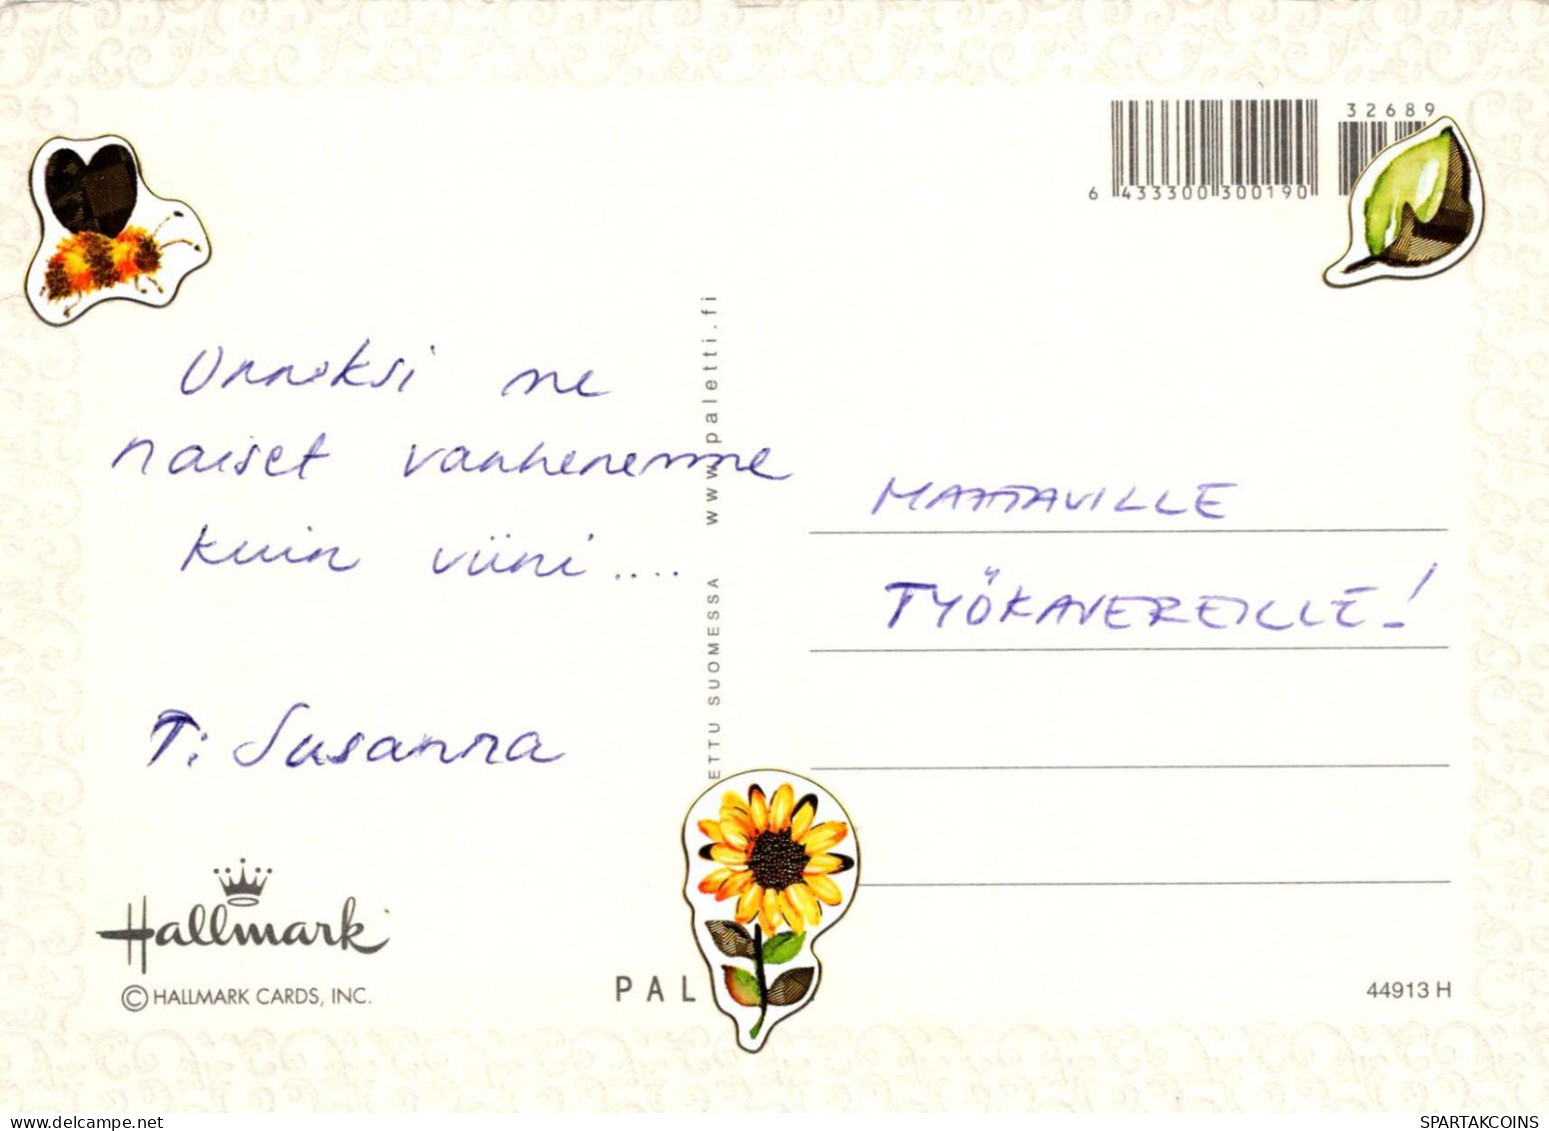 32689
6 433300 300190
Onneksi me
naiset vanhenemme
kuin viini....
T: Susanna
www.paletti.fi
ETTU SUOMESSA
MAHTAVILLE
TYÖKAVEREILLE!
Hallmark
© HALLMARK CARDS, INC.
PAL
44913 H
www.delcampe.net
SPARTAKCOINS